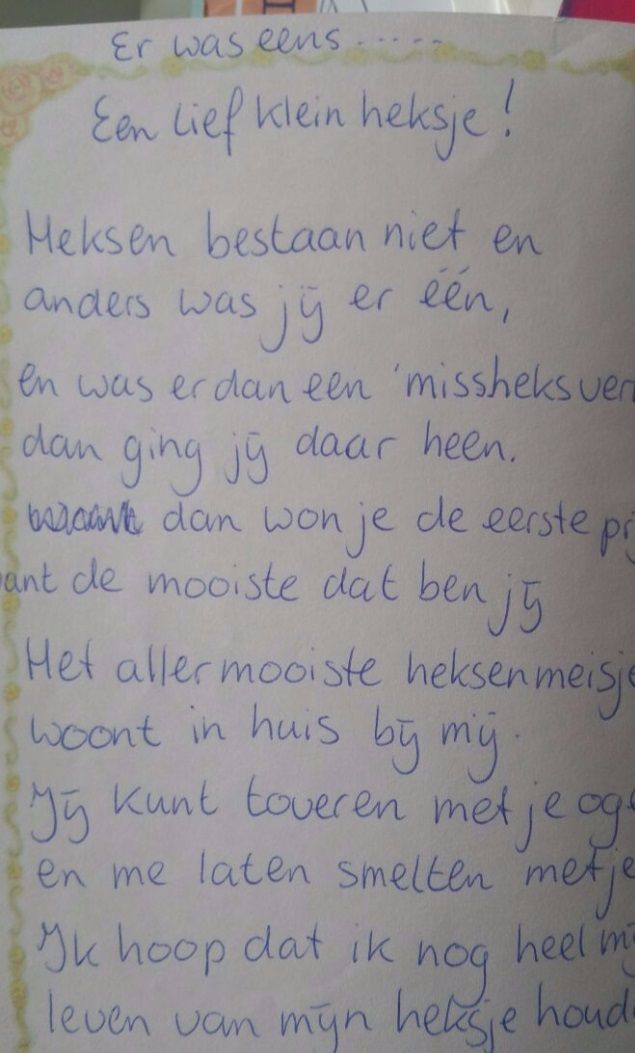 Er was eens.....
Een lief klein heksje!
Heksen bestaan niet en
anders was jij er één,
en was er dan een 'missheksver
dan ging jij daar heen.
dan won je de eerste prij
want de mooiste dat ben jij
Het allermooiste heksenmeisje
woont in huis bij mij.
Jij kunt toveren met je og
en me laten smelten met je
Ik hoop dat ik nog heel mij
leven van mijn heksje houd